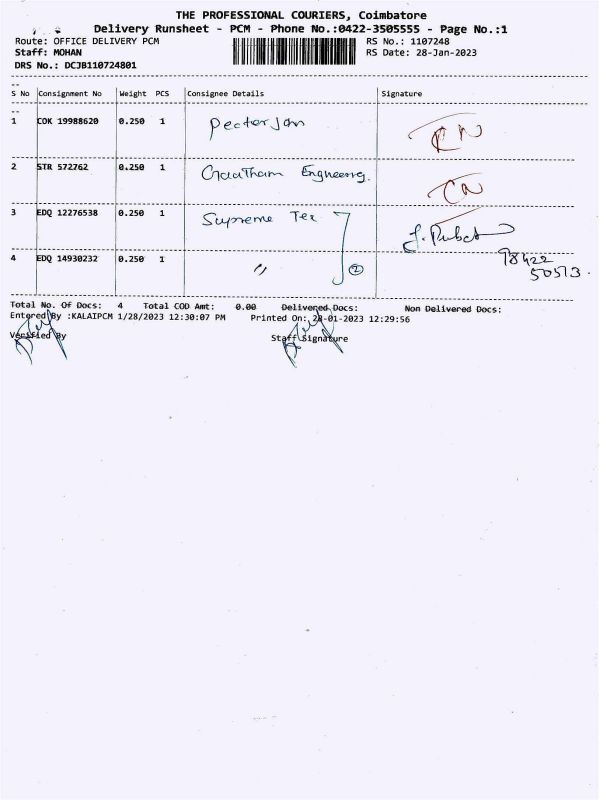 THE PROFESSIONAL COURIERS, Coimbatore
Delivery Runsheet - PCM - Phone No.:0422-3505555 - Page No.:1
Route: OFFICE DELIVERY PCM RS No.: 1107248
Staff: MOHAN RS Date: 28-Jan-2023
DRS No.: DCJB110724801
S No Consignment No Weight PCS Consignee Details Signature
1 COK 19988620 0.250 1 Pecterjan
2 STR 572762 0.250 1 Gaatham Engneerng.
3 EDQ 12276538 0.250 1 Supreme Tex
4 EDQ 14930232 0.250 1 〃 2 98422
50513.
Total No. Of Docs: 4 Total COD Amt: 0.00 Delivered Docs: Non Delivered Docs:
Entered By :KALAIPCM 1/28/2023 12:30:07 PM Printed On: 28-01-2023 12:29:56
Verified By Staff Signature